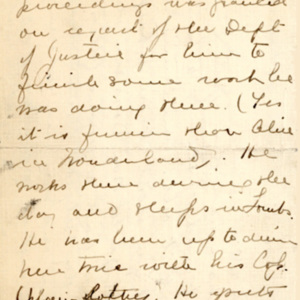 proceedings was granted
on request of the Dept
of Justice for him to
finish some work he
was doing there. (Yes
it is funnier than Alice
in Wonderland). He
works there during the
day and sleeps in Tombs.
He has been up to dinner
here twice with his Cop.
(Plain clothes. He